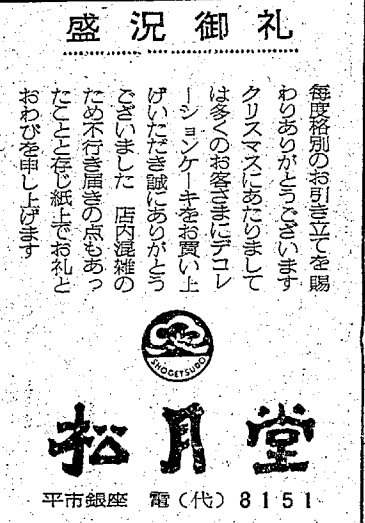 盛況御礼
毎度格別のお引き立てを賜
わりありがとうございます
クリスマスにあたりまして
は多くのお客さまにデコレ
ーションケーキをお買い上
げいただき誠にありがとう
ございました 店内混雑の
ため不行き届きの点もあっ
たことと存じ紙上でお礼と
おわびを申し上げます
SHOGETSUDO
松月堂
平市銀座 電(代)8151